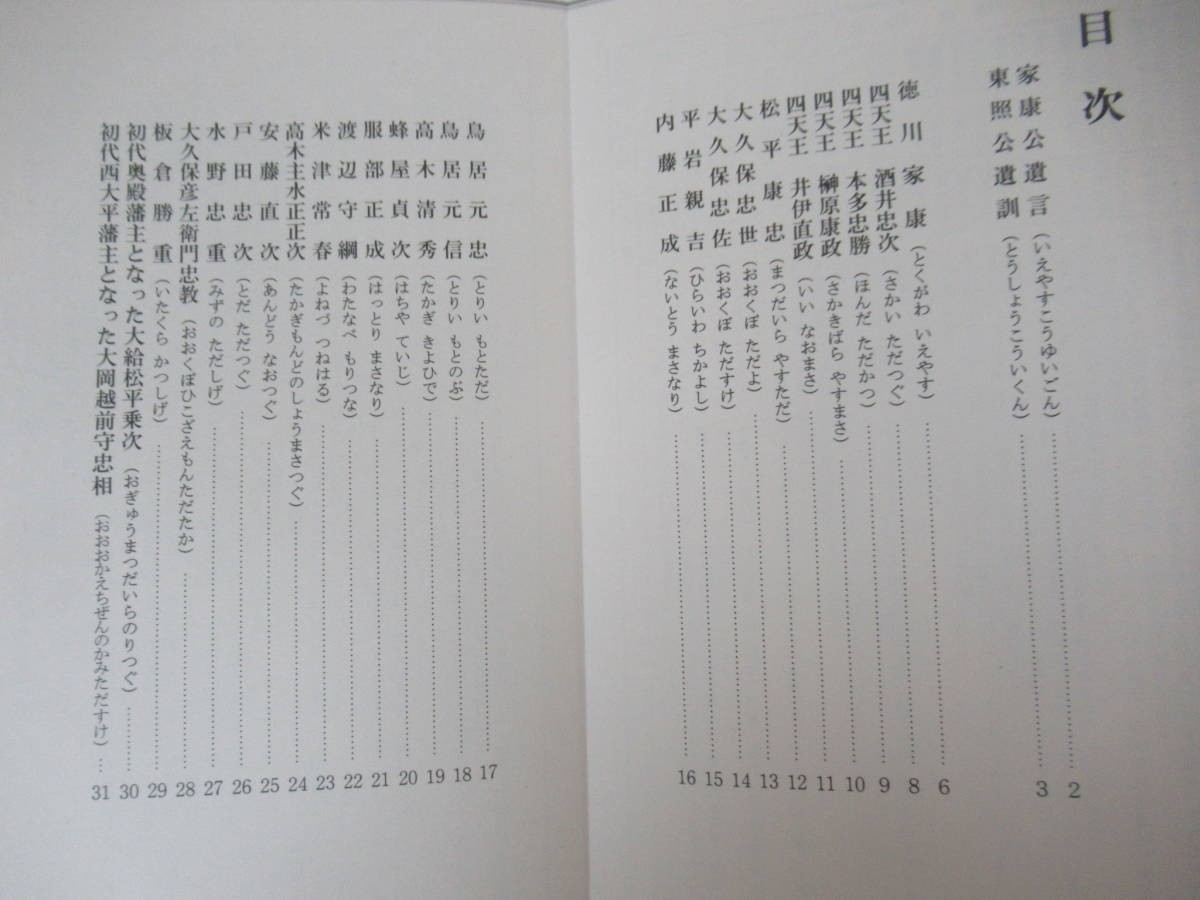 目次
家康公遺言（いえやすこうゆいごん）……2
東照公遺訓（とうしょうこういくん）……3
徳川家康（とくがわ いえやす）……6
四天王 酒井忠次（さかい ただつぐ）……8
四天王 本多忠勝（ほんだ ただかつ）……9
四天王 榊原康政（さかきばら やすまさ）……10
四天王 井伊直政（いい なおまさ）……11
松平康忠（まつだいら やすただ）……12
大久保忠世（おおくぼ ただよ）……13
大久保忠佐（おおくぼ ただすけ）……14
平岩親吉（ひらいわ ちかよし）……15
内藤正成（ないとう まさなり）……16
鳥居元忠（とりい もとただ）……17
鳥居元信（とりい もとのぶ）……18
高木清秀（たかぎ きよひで）……19
蜂屋貞次（はちや ていじ）……20
服部正成（はっとり まさなり）……21
渡辺守綱（わたなべ もりつな）……22
米津常春（よねづ つねはる）……23
高木主水正正次（たかぎもんどのしょうまさつぐ）……24
安藤直次（あんどう なおつぐ）……25
戸田忠次（とだ ただつぐ）……26
水野忠重（みずの ただしげ）……27
大久保彦左衛門忠教（おおくぼひこざえもんただたか）……28
板倉勝重（いたくら かつしげ）……29
初代奥殿藩主となった大給松平乗次（おぎゅうまつだいらのりつぐ）……30
初代西大平藩主となった大岡越前守忠相（おおおかえちぜんのかみただすけ）…31